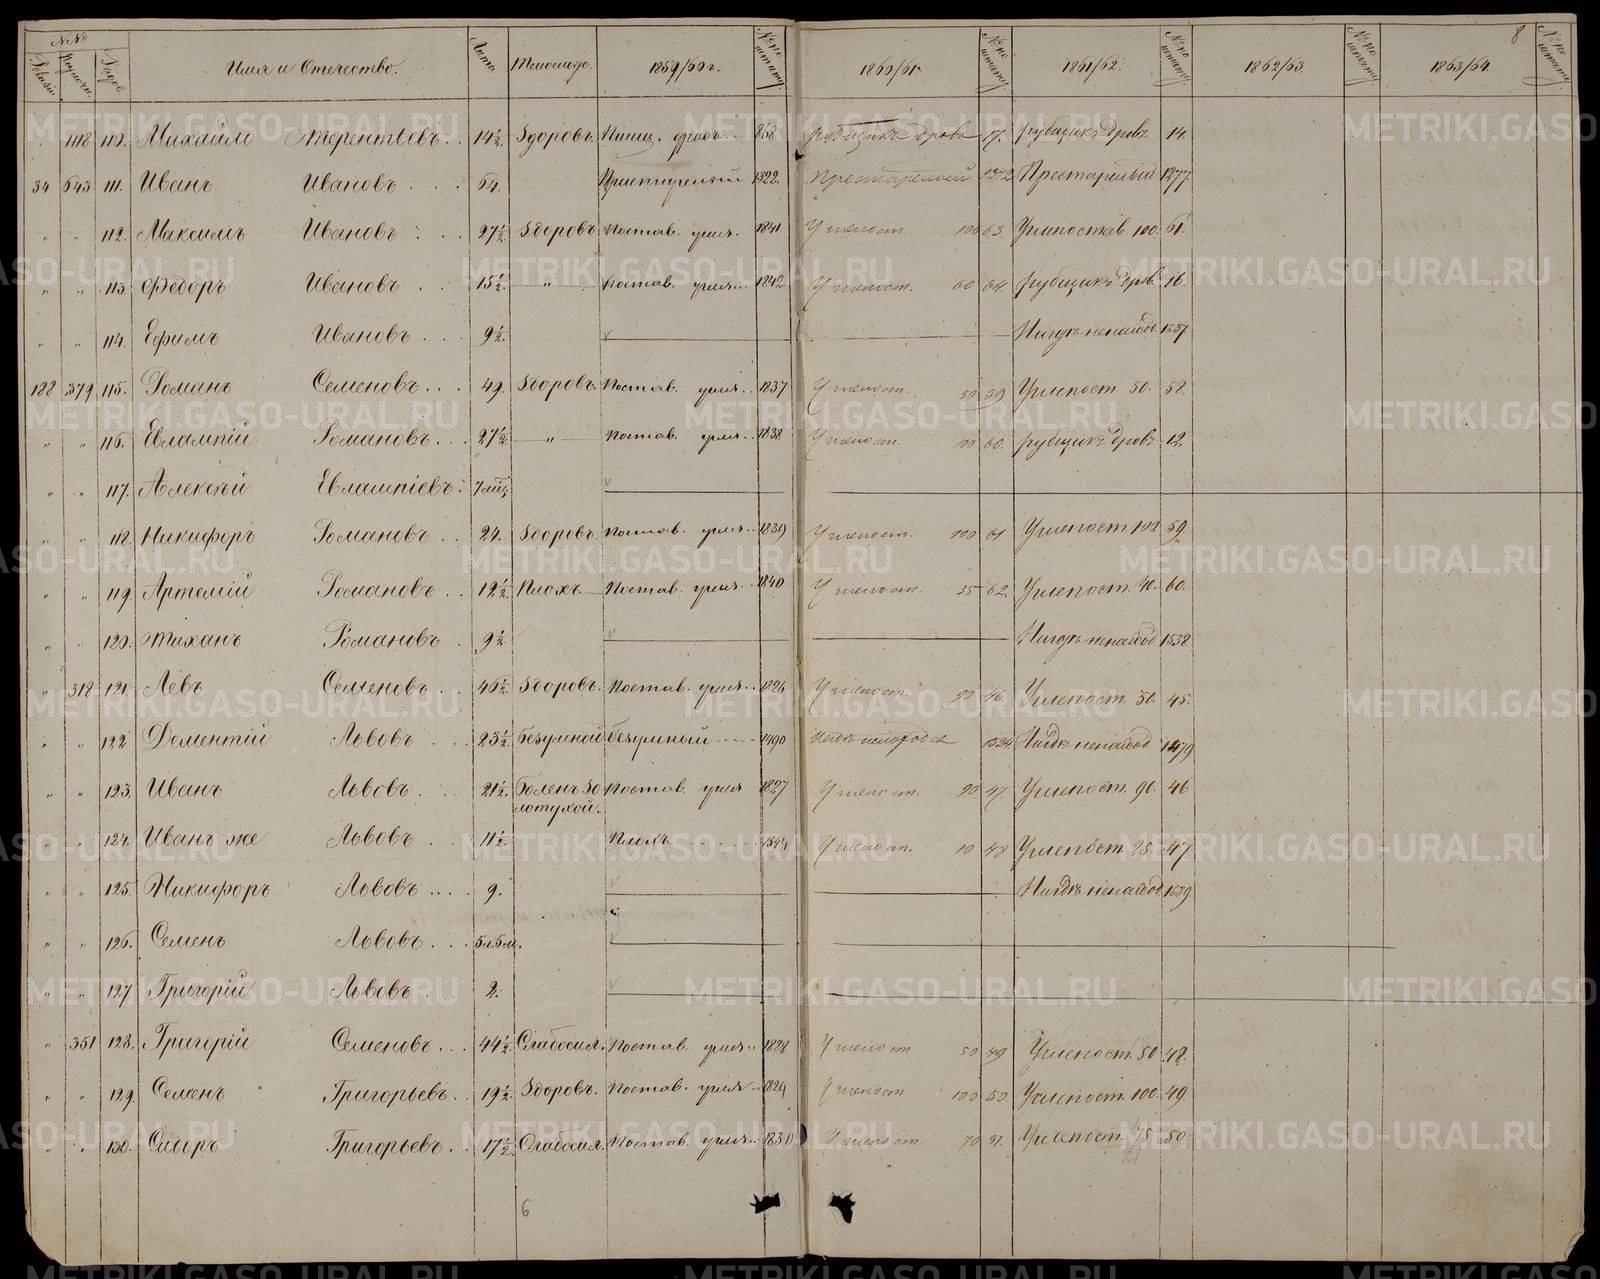 8
№№
Имя и Отечество. Лета Телослож. 1859/60 г. № по штату 1860/61. № по штату 1861/62. № по штату 1862/63. № по штату 1863/64. № по штату
1118 110. Михайло Терентьевъ 14½ Здоровъ 858 рубщикъ дровъ 17. рубщикъ дровъ 14.
34 643 111. Иванъ Ивановъ 64. Престарелый 1322. Престарелый 1372 Престарелый 1277.
" " 112. Максимъ Ивановъ 27½ Здоровъ Постав. угля. 1841 Углепост. 100 63. Углепостав. 100. 61.
" " 113. Федоръ Ивановъ 15½ " Постав. угля 1842 Углепост. 60 64. рубщикъ дров. 16.
" " 114. Ефимъ Ивановъ 9½ Нигдѣ ненаход 1537
188 379 115. Романъ Семеновъ 49. Здоровъ. Постав. угля 1837 Углепост. 50 59 Углепост. 50. 58.
" " 116. Евлампій Романовъ 27½ " Постав. угля 1838 Углепост. 100 60. рубщикъ дровъ 12.
" " 117. Алексѣй Евлампіевъ 7 мѣс
" " 118. Никифоръ Романовъ 24. Здоровъ. Постав. угля 1839 Углепост. 100 61 Углепост 102 59.
" " 119. Артемій Романовъ 12½ Плохъ Постав. угля 1840 Углепост. 35 62. Углепост. 40. 60.
" " 120. Тиханъ Романовъ 9½ Нигдѣ ненаход 1538.
" 318 121. Левъ Семеновъ 46½ Здоровъ. Постав. угля 1826 Углепост. 90 46. Углепост. 50. 45.
" " 122 Дементій Львовъ 23½ безумной безумный 1490 1524 Нигдѣ ненаход 1479
" " 123. Иванъ Львовъ 21½ Боленъ зо- Постав. угля 1827 Углепост. 90 47. Углепост. 90. 46
лотухой.
" " 124. Иванъ же Львовъ 11½ Плохъ 1544 Углепост. 10 48 Углепост. 25. 47
" " 125. Никифоръ Львовъ 9. Нигдѣ ненаход 1539.
" " 126. Семенъ Львовъ 5л.5м.
" " 127 Григорій Львовъ 2.
" 351 128. Григорій Семеновъ 44½ Слабосил. Постав. угля 1828 Углепост. 50 49 Углепост. 50 48.
" " 129. Семенъ Григорьевъ 19½ Здоровъ. Постав. угля 1829 Углепост 100 50. Углепост. 100. 49.
" " 130. Сидоръ Григорьевъ 17½ Слабосил. Постав. угля 1830 Углепост. 70 51. Углепост. 75. 50.
6
METRIKI.GASO-URAL.RU